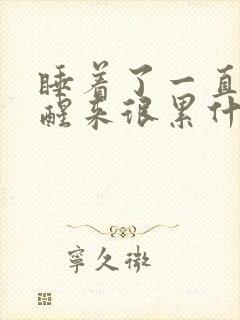 睡着了一直
醒来很累什
寧久微